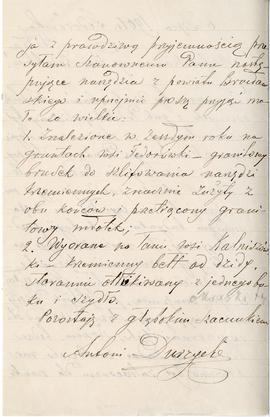 ja z prawdziwą przyjemnością prze-
syłam Szanownemu Panu nastę-
pujące narzędzia z powiatu
skiego i uprzejmie proszę przyjąć
to za wielkie.
1. Znalezione w zeszłym roku na
gruntach wsi Fedorówki – granitowy
do szlifowania narzędzi
krzemiennych, znacznie zużyty z
obu końców i przełączony grani-
towy młotek;
2. Wyorane na łanu wsi
ki – krzemienny od dzidy
starannie z jednego bo-
ku i szydło.
Pozostaję z głębokim szacunkiem
Antoni